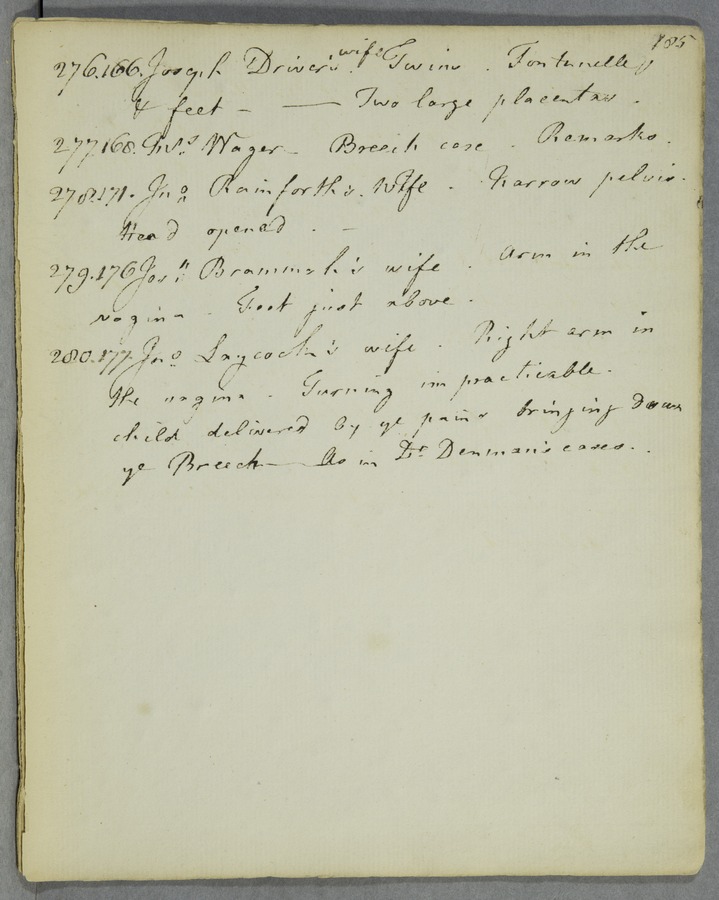 185
276.166. Joseph Driver's wife Twins. Fontanelles
& feet - — Two large placentas.
277.168. Wager - Breech case. Remarks.
278.171. Jno Rainforth's Wife. Narrow pelvis.
Head opened. -
279.176 Josh Brammah's wife. Arm in the
vagina. Foot just above.
280.177. Jno Laycock's wife. Right arm in
the vagina. Turning impracticable.
child delivered by ye pains bringing down
ye Breech — As in Dr Denman's cases.